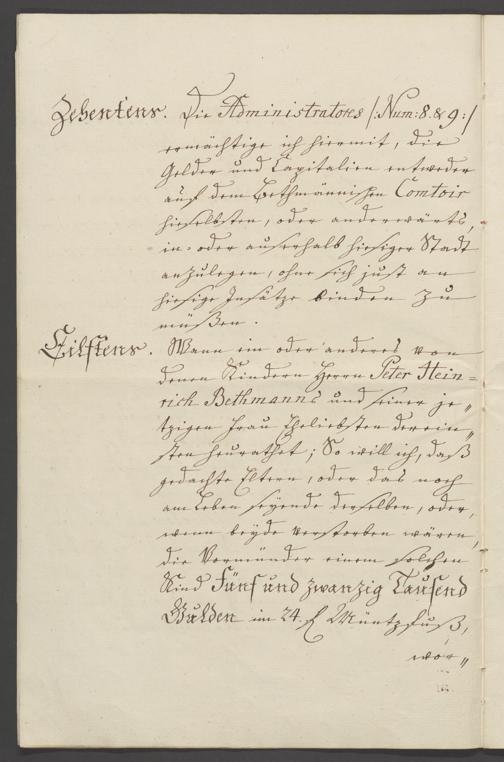 Zehentens. Die Administratores /:Num: 8. & 9:/
ermächtige ich hiermit, die
Gelder und Capitalien entweder
auf dem Bethmännischen Comtoir
hieselbsten, oder anderwärts,
in- oder auserhalb hiesiger Stadt
anzulegen, ohne sich just an
hiesige Insätze binden zu
müßen.
Eilftens. Wann ein oder anderes von
denen Kindern Herrn Peter Hein=
rich Bethmanns und seiner je„
tzigen Frau Eheliebsten derein„
sten heurathet; So will ich, daß
gedachte Eltern, oder das noch
am Leben seyende derselben, oder,
wenn beyde verstorben wären,
die Vormünder einem solchen
Kind Fünf und zwanzig Tausend
Gulden im 24. f Müntzfuß,
wor„